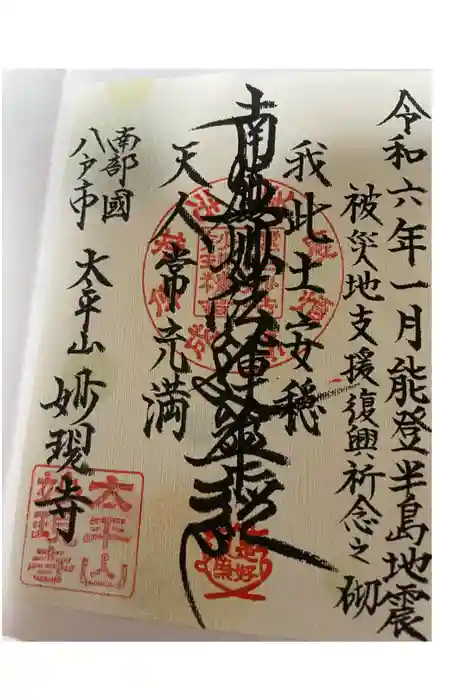 令和六年一月能登半島地震
被災地支援復興祈念之砌
我此土安穏
南無妙法蓮華経
天人常充満
南部國
八戸市 太平山 妙現寺
太平山
妙現寺